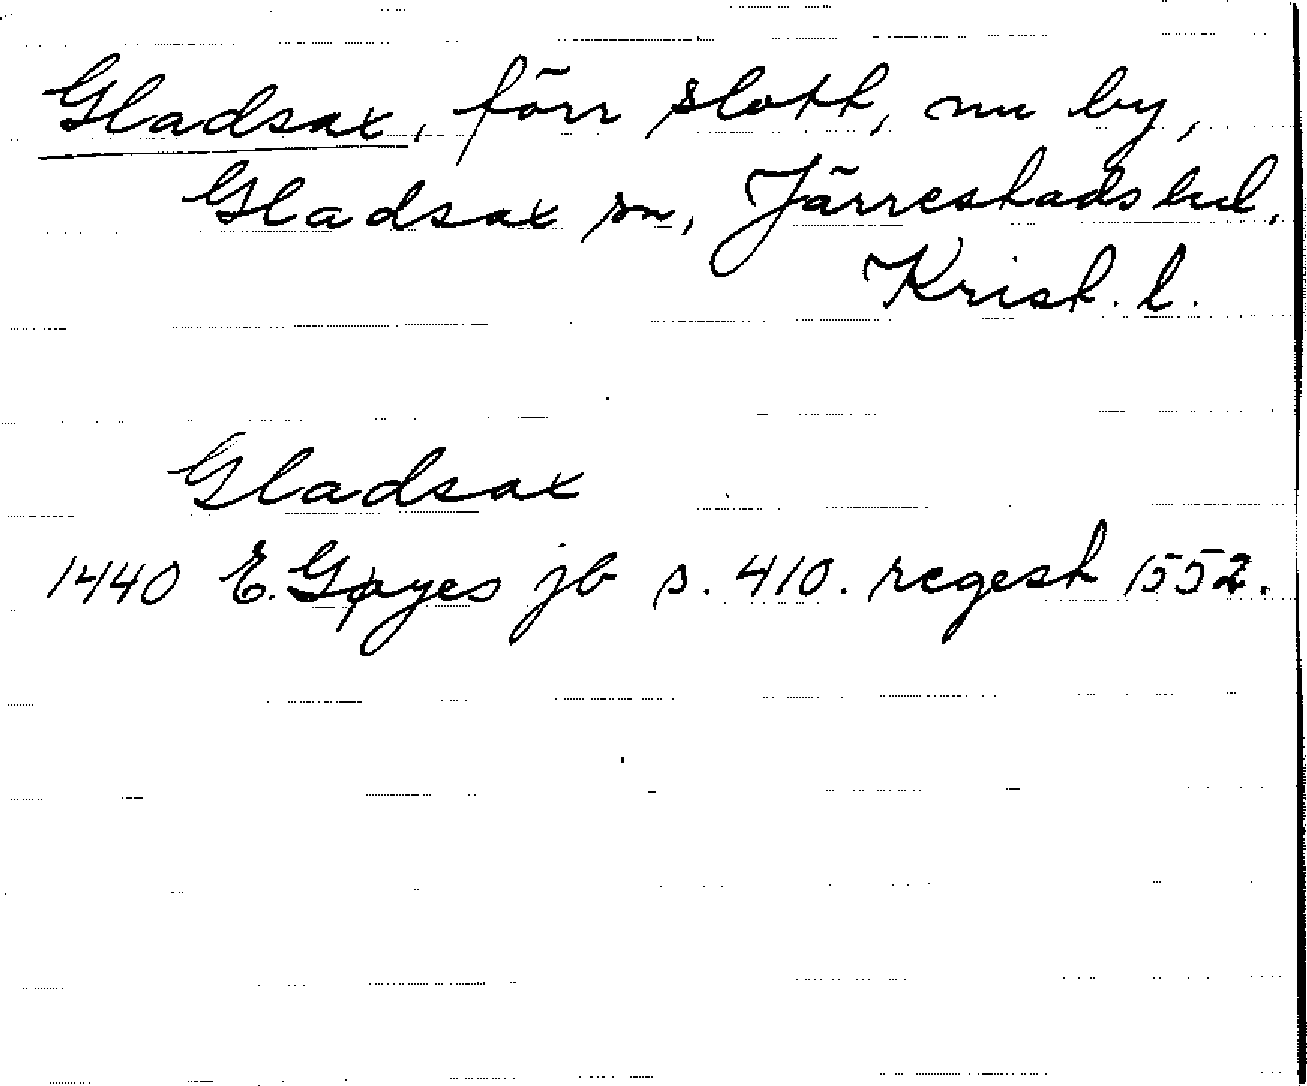 Gladsax, förr slott, nu by,
Gladsax sn, Järrestads hd.
Krist. l.
Gladsax
1440 E. Gøyes jb s. 410. regest 1552.